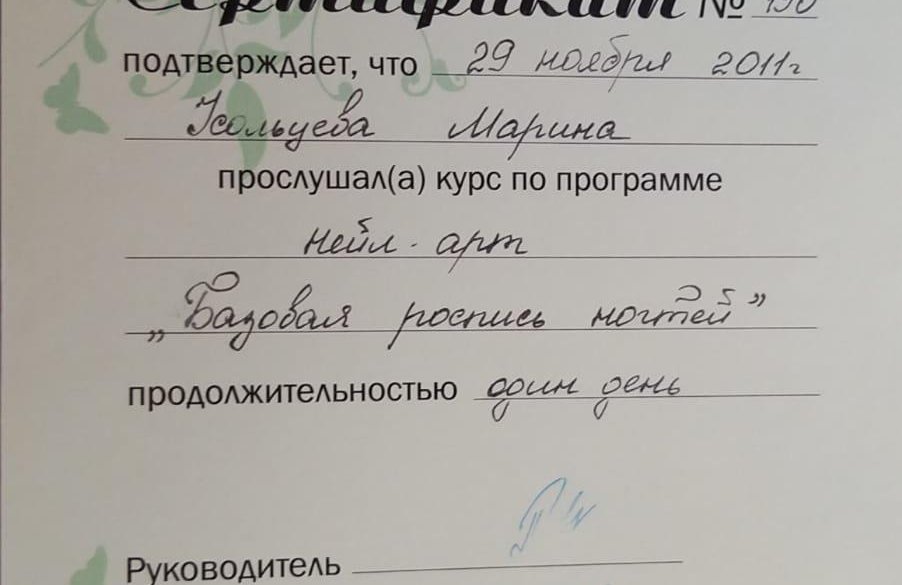 Сертификат № 190
подтверждает, что 29 ноября 2011г
Усольцева Марина
прослушал(а) курс по программе
нейл-арт
„Базовая роспись ногтей”
продолжительностью один день
Руководитель